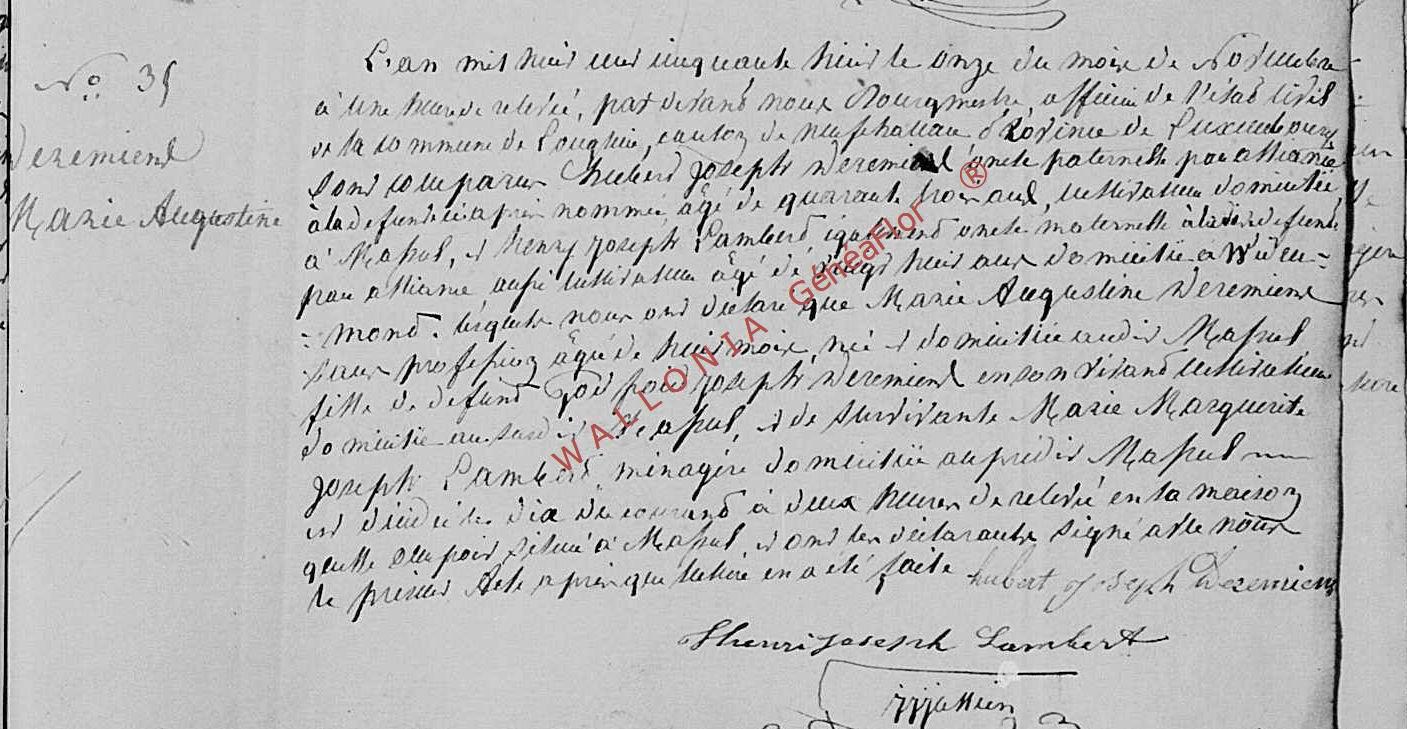 N° 35
Deremiend
Marie Augustine
L'an mil huit cent cinquante huit le onze du mois de Novembre
à une heure de relevée, par devant nous Bourgmestre, officier de l'état civil
de la commune de Longlier, canton de neufchateau Province de Luxembourg
sont comparus hubert Joseph Deremiend oncle paternelle par alliance
à la defunte ci après nommée, âgé de quarante trois ans, cultivateur domicilié
à Massul, et henry joseph Lambert, également oncle maternelle à la dite defunte
par alliance, aussi cultivateur âgé de vingt huit ans domicilié à
= mont. lesquels nous ont declaré que Marie Augustine Deremiend
sans profession âgée de huit mois, née et domiciliée audit Massul
fille de defunt joseph Deremiend en son vivant cultivateur
domicilié au susdit Massul, et de survivante Marie Marguerite
joseph Lambert, ménagère domiciliée au prédit Massul
est décédée le dix du courant à deux heures de relevée en la maison
qu'elle occupoit située à Massul, et ont les déclarants signé avec nous
le présent Acte après que lecture en a été faite hubert joseph Deremiens
Henri joseph Lambert
WALLONIA GénéaFlor ®